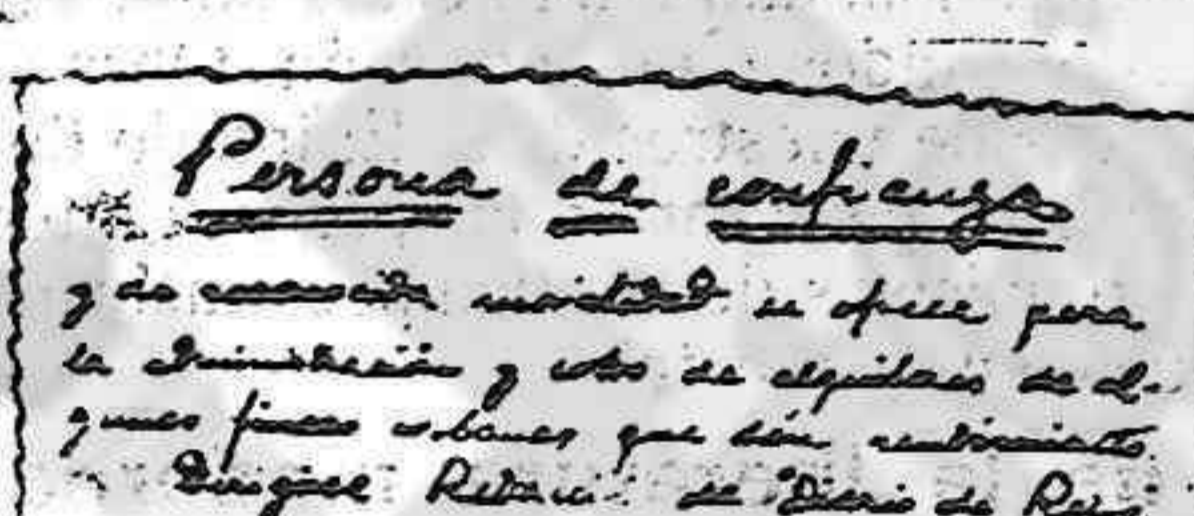 Persona de confianza
y de reconocida moralidad se ofrece para
la administración y cobro de alquileres de al-
gunas fincas urbanas que den rendimiento.
Dirigirse Redacció de "Diario de Reus"